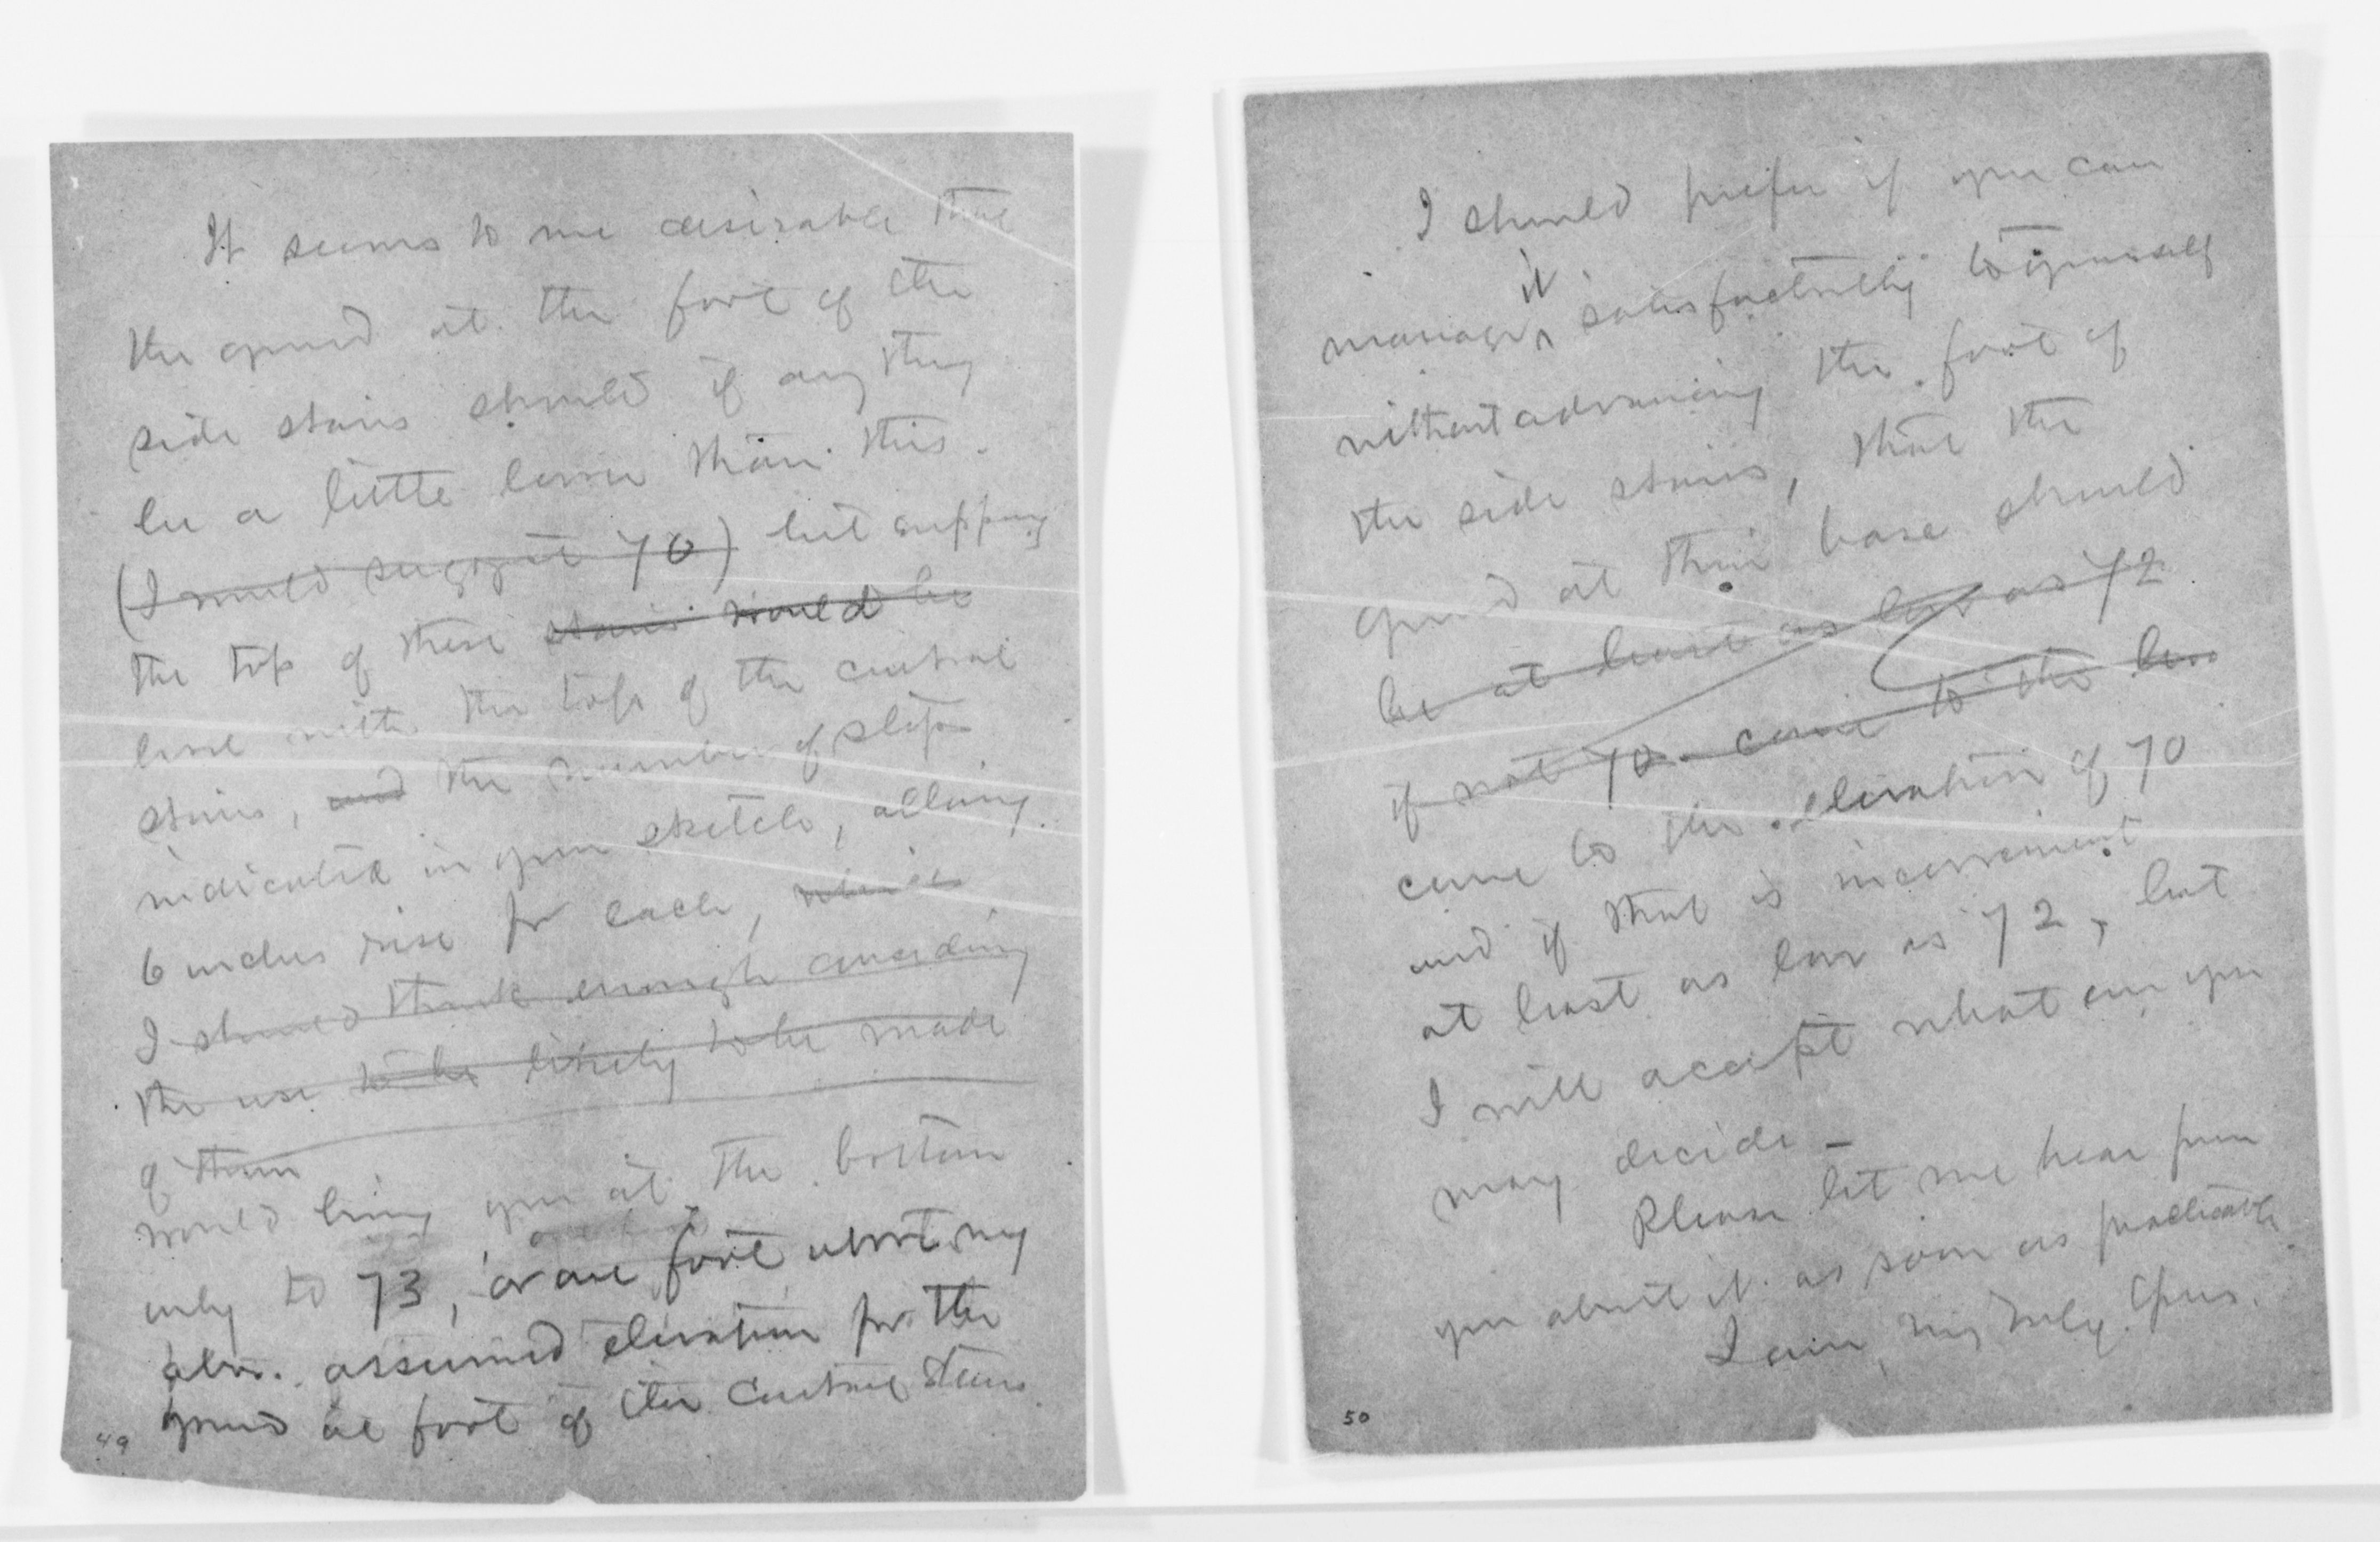 It seems to me desirable that
the ground at the foot of the
side stairs should if any thing
be a little lower than this.
(I would suggest 70) but supposing
the top of these stairs would be
level with the top of the central
stairs, and the number of steps
indicated in your sketch, allowing
6 inches rise for each, which
I should think enough considering
the use to be likely to be made
of them
would bring you at the bottom
only to 73, or one foot about my
assumed elevation for the
ground at foot of the central stairs.
49
I should prefer if you can
manage it satisfactorily to yourself
without advancing the foot of
the side stairs, that the
ground at their base should
be at least as low as 72
if not 70 - come to the low
come to the elevation of 70
and if that is inconvenient
at least as low as 72, but
I will accept what ever you
may decide -
Please let me hear from
you about it as soon as practicable
I am, very truly Yours.
50